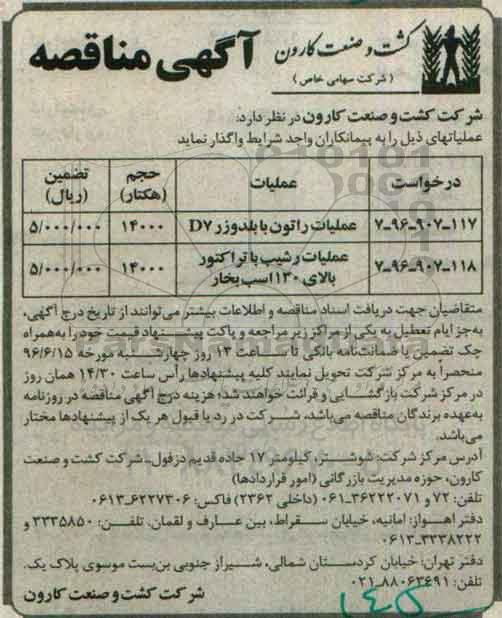 کشت و صنعت کارون
( شرکت سهامی خاص )
آگهی مناقصه
شرکت کشت و صنعت کارون در نظر دارد:
عملیاتهای ذیل را به پیمانکاران واجد شرایط واگذار نماید
درخواست عملیات حجم (هکتار) تضمین (ریال)
۷-۹۶-۹۰۷-۱۱۷ عملیات راتون با بلدوزر D۷ ۱۴۰۰۰ ۵/۰۰۰/۰۰۰
۷-۹۶-۹۰۷-۱۱۸ عملیات رشیپ با تراکتور بالای ۱۳۰ اسب بخار ۱۴۰۰۰ ۵/۰۰۰/۰۰۰
متقاضیان جهت دریافت اسناد مناقصه و اطلاعات بیشتر می‌توانند از تاریخ درج آگهی،
به‌جز ایام تعطیل به یکی از مراکز زیر مراجعه و پاکت پیشنهاد قیمت خود را به‌همراه
چک تضمین یا ضمانت‌نامه بانکی تا ساعت ۱۳ روز چهارشنبه مورخه ۹۶/۶/۱۵
منحصراً به مرکز شرکت تحویل نمایند کلیه پیشنهادها رأس ساعت ۱۴/۳۰ همان روز
در مرکز شرکت بازگشایی و قرائت خواهند شد؛ هزینه درج آگهی مناقصه در روزنامه
به‌عهده برندگان مناقصه می‌باشد، شرکت در رد یا قبول هر یک از پیشنهادها مختار
می‌باشد.
آدرس مرکز شرکت: شوشتر، کیلومتر ۱۷ جاده قدیم دزفول، شرکت کشت و صنعت
کارون، حوزه مدیریت بازرگانی (امور قراردادها)
تلفن: ۷۲ و ۳۶۲۲۲۰۷۱-۰۶۱ (داخلی ۲۳۶۲) فاکس: ۶۲۲۷۳۰۶-۰۶۱۳
دفتر اهواز: امانیه، خیابان سقراط، بین عارف و لقمان. تلفن: ۳۳۳۵۸۵۰ و
۳۳۳۸۲۲۲-۰۶۱۳
دفتر تهران: خیابان کردستان شمالی، شیراز جنوبی بن‌بست موسوی پلاک یک.
تلفن: ۸۸۰۶۳۶۹۱-۰۲۱
شرکت کشت و صنعت کارون